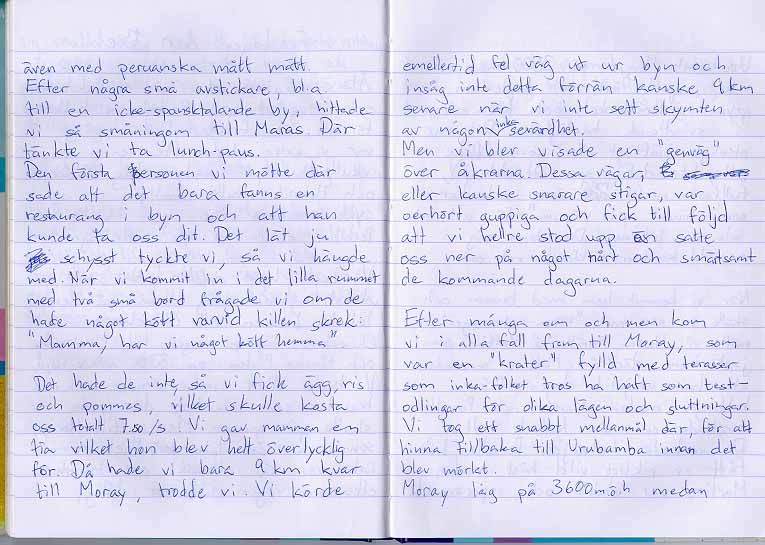 även med peruanska mått mätt.
Efter några små avstickare, bl.a
till en icke-spansktalande by, hittade
vi så småningom till Maras. Där
tänkte vi ta lunch-paus.
Den första personen vi mötte där
sade att det bara fanns en
restaurang i byn och att han
kunde ta oss dit. Det lät ju
schysst tyckte vi, så vi hängde
med. När vi kommit in i det lilla rummet
med två små bord frågade vi om de
hade något kött varvid killen skrek:
"Mamma, har vi något kött hemma".
Det hade de inte, så vi fick ägg, ris
och pommes, vilket skulle kosta
oss totalt 7.50 /S. Vi gav mamman en
tia vilket hon blev helt överlycklig
för. Då hade vi bara 9 km kvar
till Moray, trodde vi. Vi körde
emellertid fel väg ut ur byn och
insåg inte detta förrän kanske 9 km
senare när vi inte sett skymten
av någon inka sevärdhet.
Men vi blev visade en "genväg"
över åkrarna. Dessa vägar,
eller kanske snarare stigar, var
oerhört guppiga och fick till följd
att vi hellre stod upp än satte
oss ner på något hårt och smärtsamt
de kommande dagarna.
Efter många om och men kom
vi i alla fall fram till Moray, som
var en "krater" fylld med terasser
som inka-folket tros ha haft som test-
odlingar för olika lägen och sluttningar.
Vi tog ett snabbt mellanmål där, för att
hinna tillbaka till Urubamba innan det
blev mörkt.
Moray låg på 3600 möh medan